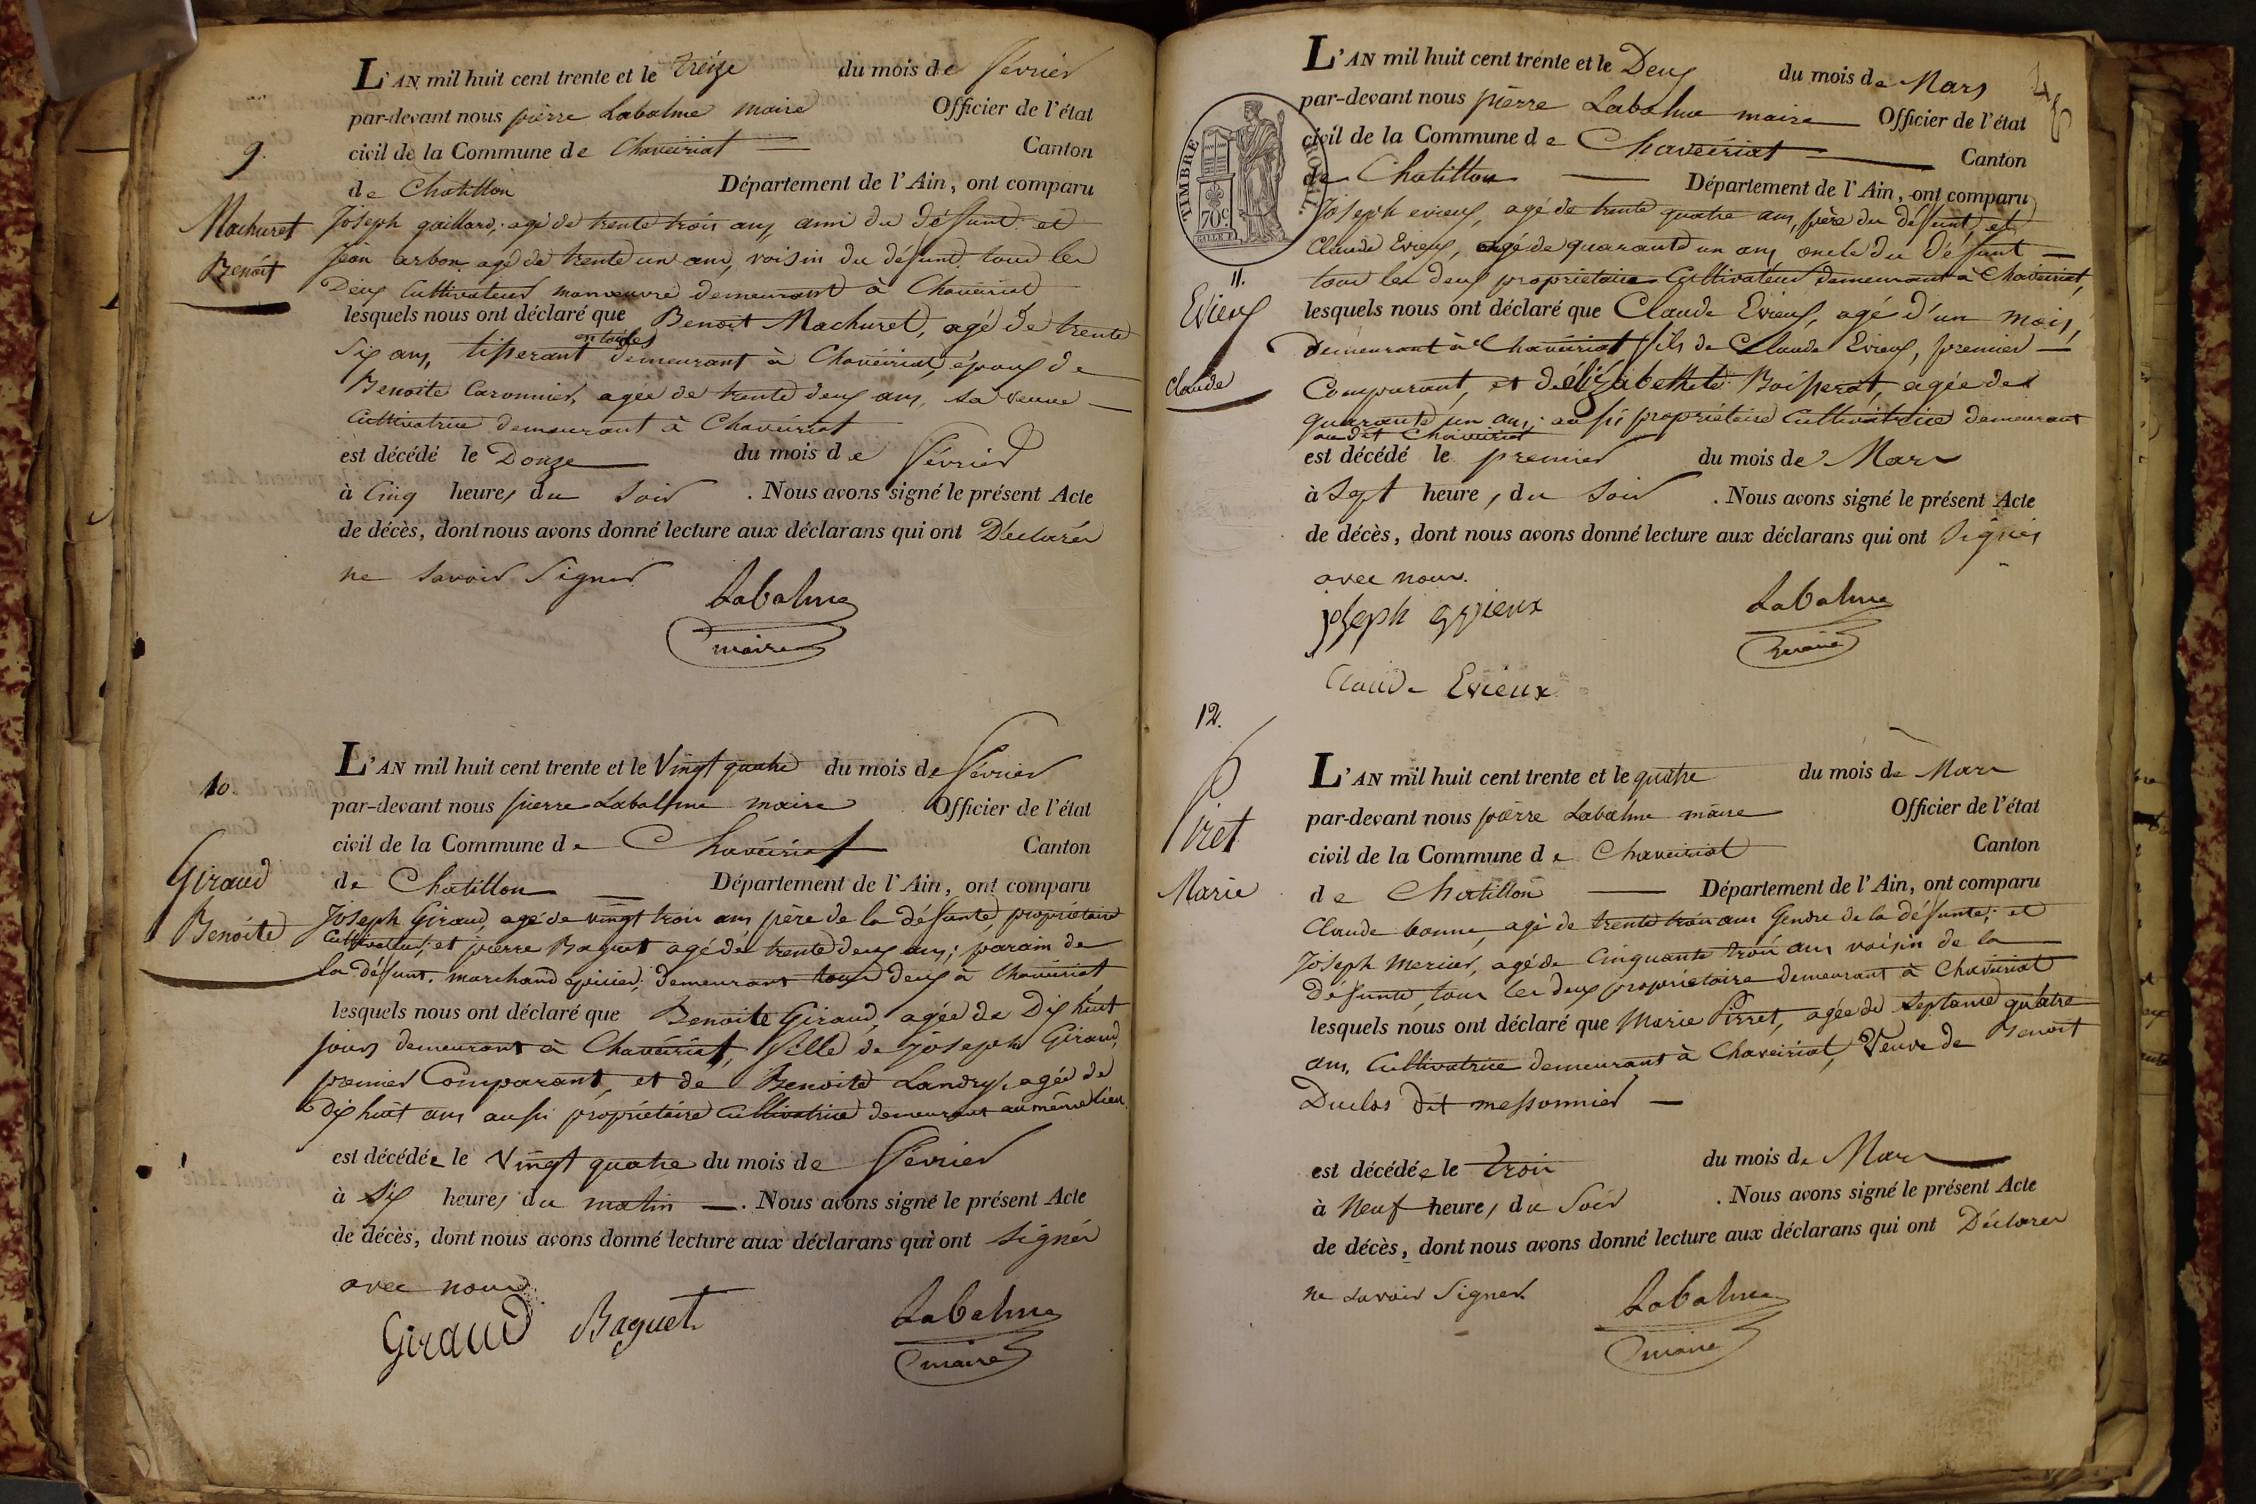 L'AN mil huit cent trente et le treize du mois de fevrier
par-devant nous pierre Labalme maire Officier de l'état
civil de la Commune de Chaveiriat Canton
de Chatillon Département de l'Ain, ont comparu
9.
Machuret
Benoit
Joseph gaillard, agé de trente trois ans, ami du défunt et
Jean arbon agé de trente un ans, voisin du défunt tous les
Deux Cultivateurs manoeuvre demeurant à Chaveiriat
lesquels nous ont déclaré que Benoit Machuret, agé de trente
Six ans, tisserant en toiles demeurant à Chavéiriat, époux de
Benoite Caronnier, agée de trente deux ans, sa veuve
Cultivatrice demeurant à Chavéiriat
est décédé le Douze du mois de fevrier
à Cinq heures du Soir . Nous avons signé le présent Acte
de décès, dont nous avons donné lecture aux déclarans qui ont Déclarér
ne Savoir Signer
Labalme
maire
L'AN mil huit cent trente et le Vingt quatre du mois de fevrier
par-devant nous pierre Labalme maire Officier de l'état
civil de la Commune de Chavéiriat Canton
de Chatillon Département de l'Ain, ont comparu
10.
Giraud
Benoite
Joseph Giraud, agé de vingt trois ans, père de la défunte, propriétaire
Cultivateur, et pierre Baguet agé de trente deux ans; parain de
la défunt. marchand épicier; demeurant tous deux à Chavéiriat
lesquels nous ont déclaré que Benoite Giraud, agée de Dix huit
jours demeurant à Chavéiriat, fille de joseph Giraud,
premier Comparant, et de Benoite Landry, agée de
Dix huit ans aussi propriétaire Cultivatrice demeurant au même lieu
est décédée le Vingt quatre du mois de fevrier
à Six heures du matin . Nous avons signé le présent Acte
de décès, dont nous avons donné lecture aux déclarans qui ont Signér
avec nous
Giraud Baguet
Labalme
maire
L'AN mil huit cent trente et le Deux du mois de Mars
par-devant nous pierre Labalme maire Officier de l'état
civil de la Commune de Chaveiriat Canton
de Chatillon Département de l'Ain, ont comparu
TIMBRE ROYAL
70c
11.
Evieux
Claude
Joseph evieux, agé de trente quatre ans, père du défunt, et
Claude Evieux, agé de quarante un ans, oncle du défunt
tous les deux propriétaire Cultivateur demeurant à Chaveiriat,
lesquels nous ont déclaré que Claude Evieux, agé d'un mois,
Demeurant à Chavéiriat, fils de Claude Evieux, premier
Comparant, et d'élizabethe Boisserat, agée de
quarante un ans; aussi propriétaire Cultivatrice demeurant
au dit Chavéiriat
est décédé le premier du mois de Mars
à Sept heures, du Soir . Nous avons signé le présent Acte
de décès, dont nous avons donné lecture aux déclarans qui ont Signés
avec nous.
Labalme
maire
Claude Evieux
12.
Piret
Marie
L'AN mil huit cent trente et le quatre du mois de Mars
par-devant nous pierre Labalme maire Officier de l'état
civil de la Commune de Chaveiriat Canton
de Chatillon Département de l'Ain, ont comparu
Claude bonne, agé de trente trois ans Gendre de la défunte; et
Joseph Mercier, agé de Cinquante trois ans voisin de la
Défunte, tous les deux propriétaire demeurant à Chavéiriat
lesquels nous ont déclaré que Marie Pirret, agée de Septante quatre
ans, Cultivatrice demeurant à Chaveiriat, Veuve de Benoit
Duclos dit messonnier
est décédée le trois du mois de Mars
à Neuf heures, du Soir . Nous avons signé le présent Acte
de décès, dont nous avons donné lecture aux déclarans qui ont Déclarer
ne savoir Signer
Labalme
maire